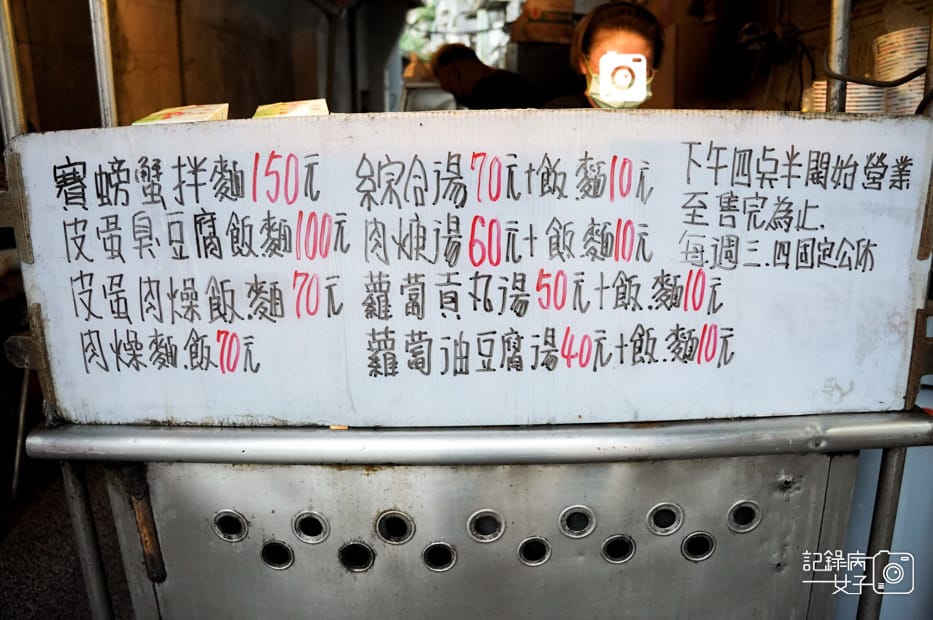 賽螃蟹拌麵150元
皮蛋臭豆腐飯.麵100元
皮蛋肉燥飯.麵70元
肉燥麵.飯70元
綜合湯70元+飯.麵10元
肉焿湯60元+飯.麵10元
蘿蔔貢丸湯50元+飯.麵10元
蘿蔔油豆腐湯40元+飯.麵10元
下午四点半開始營業
至售完為止.
每週三.四固定公休
記錄病
女子